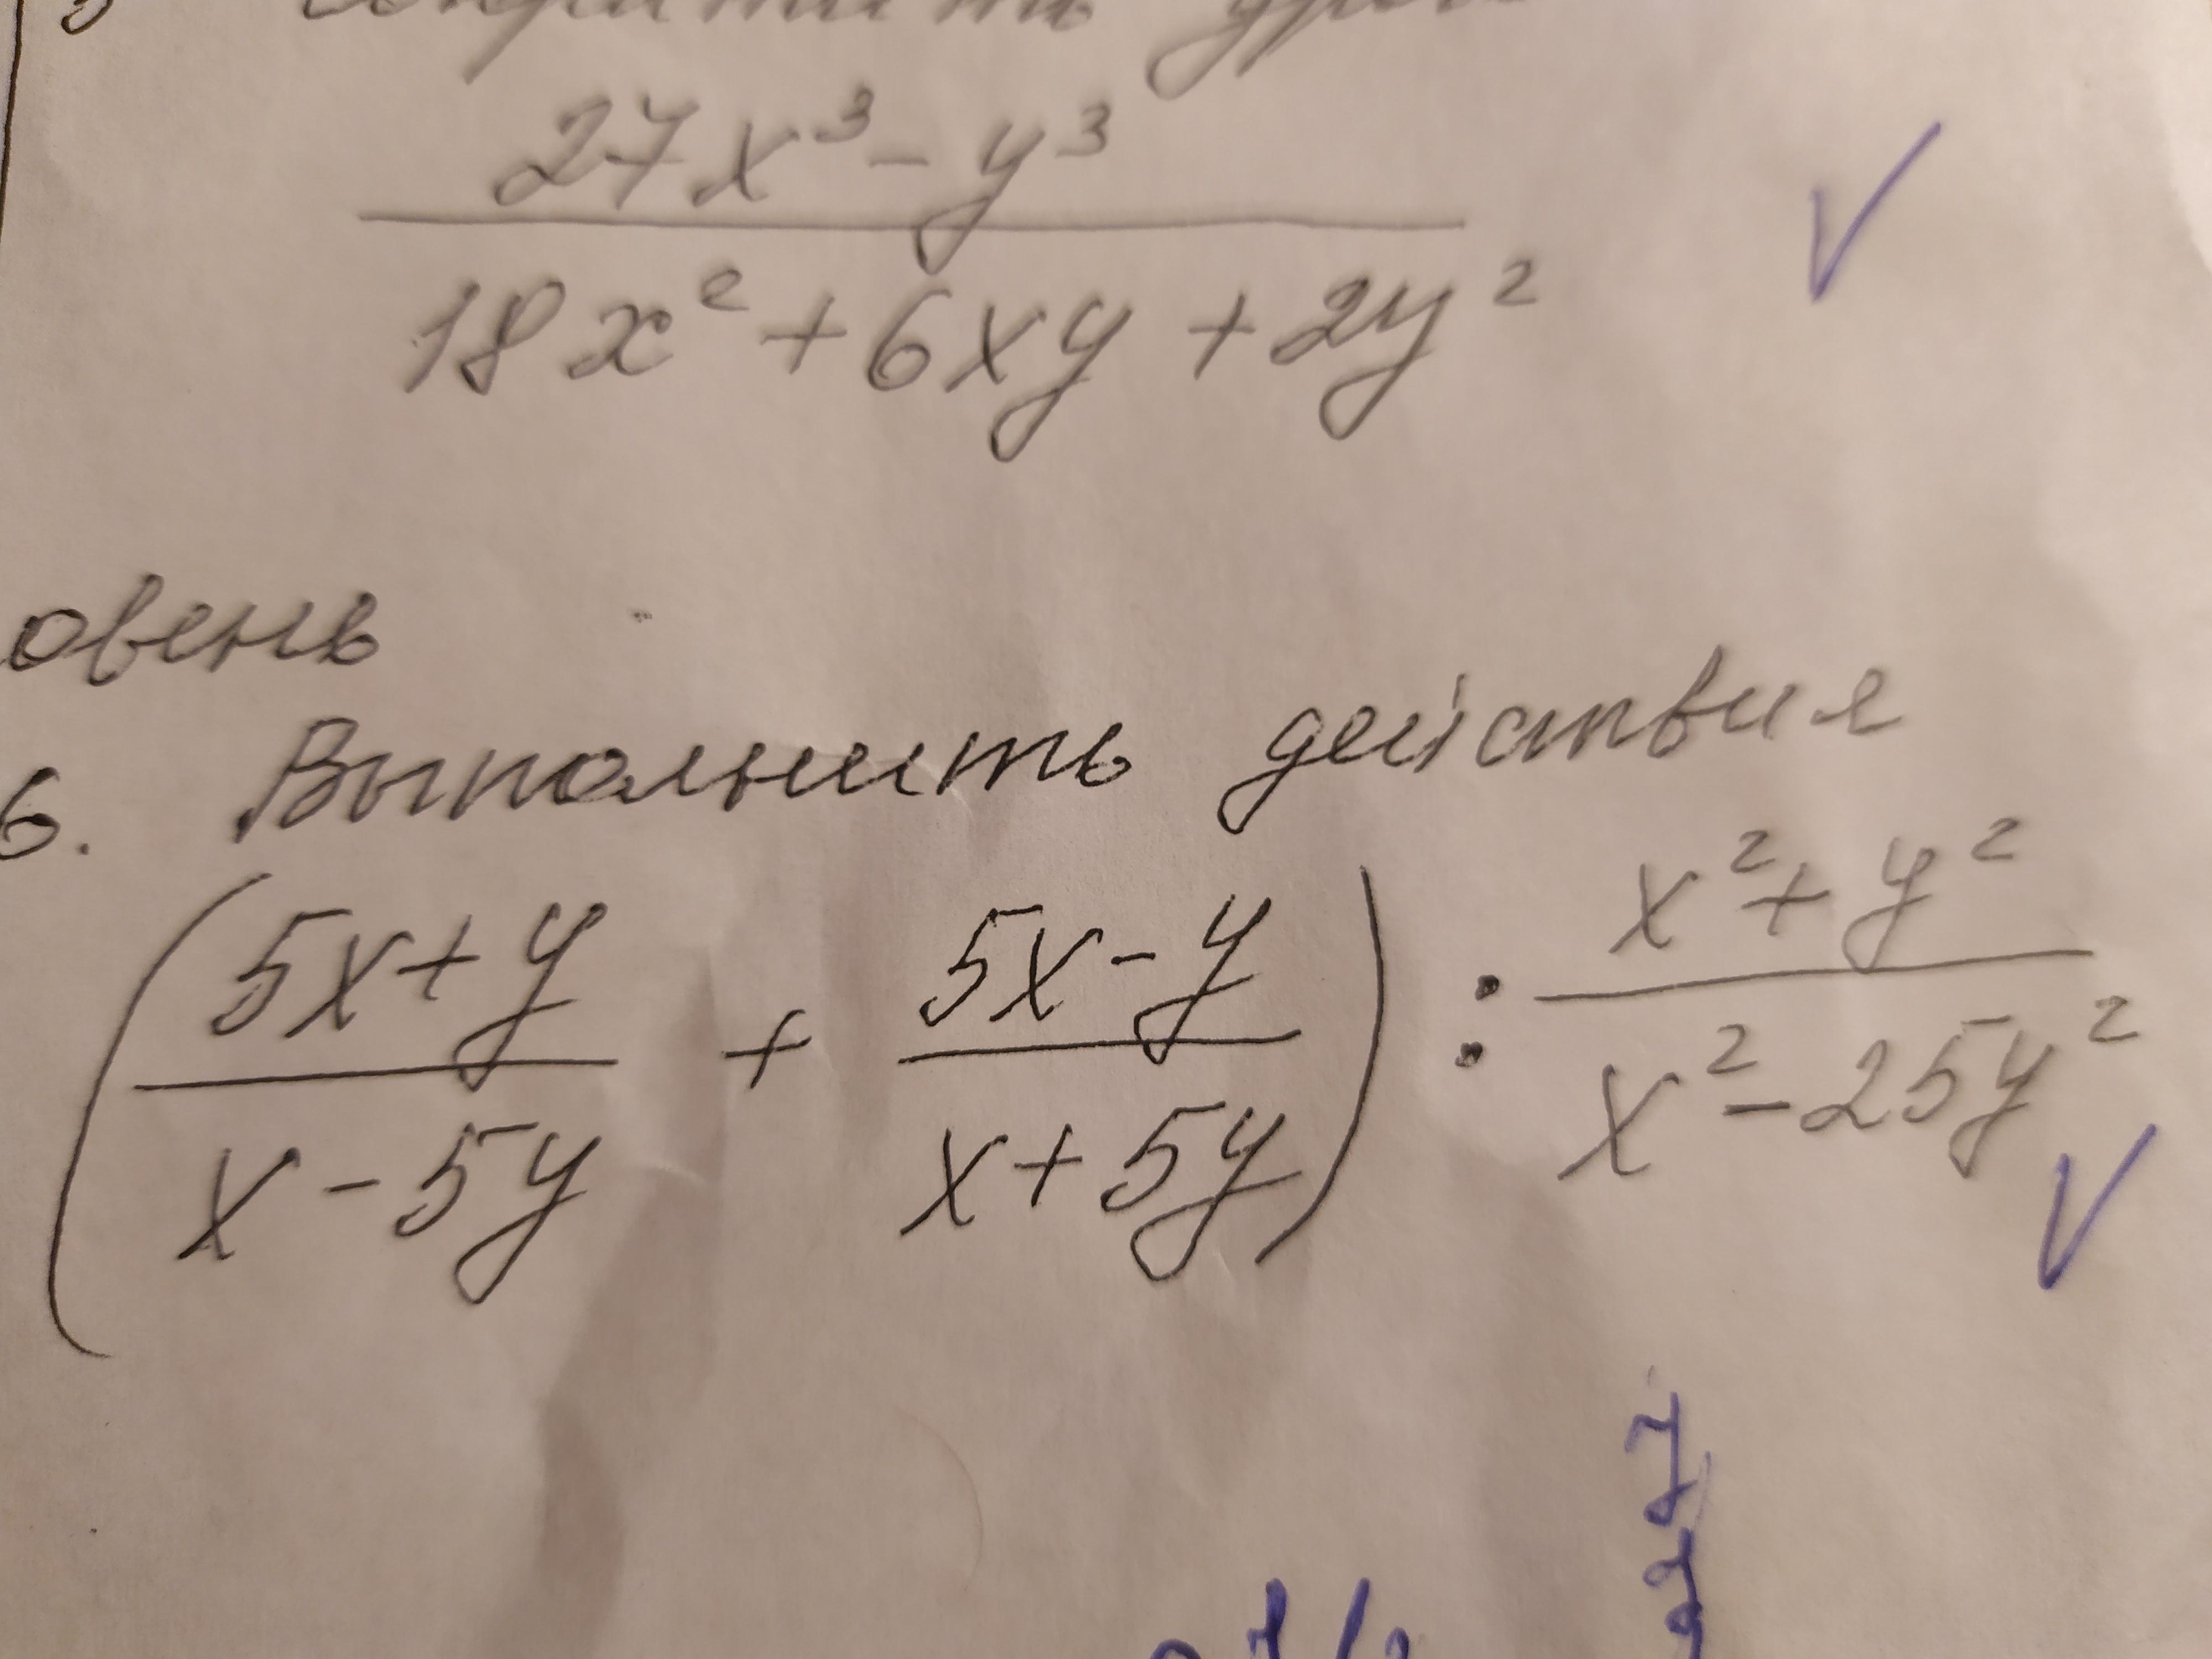 27x³ - y³
18x² + 6xy + 2y²
овень
6. Выполнить действия
(5x+y / x-5y + 5x-y / x+5y) : x²+y² / x²-25y²